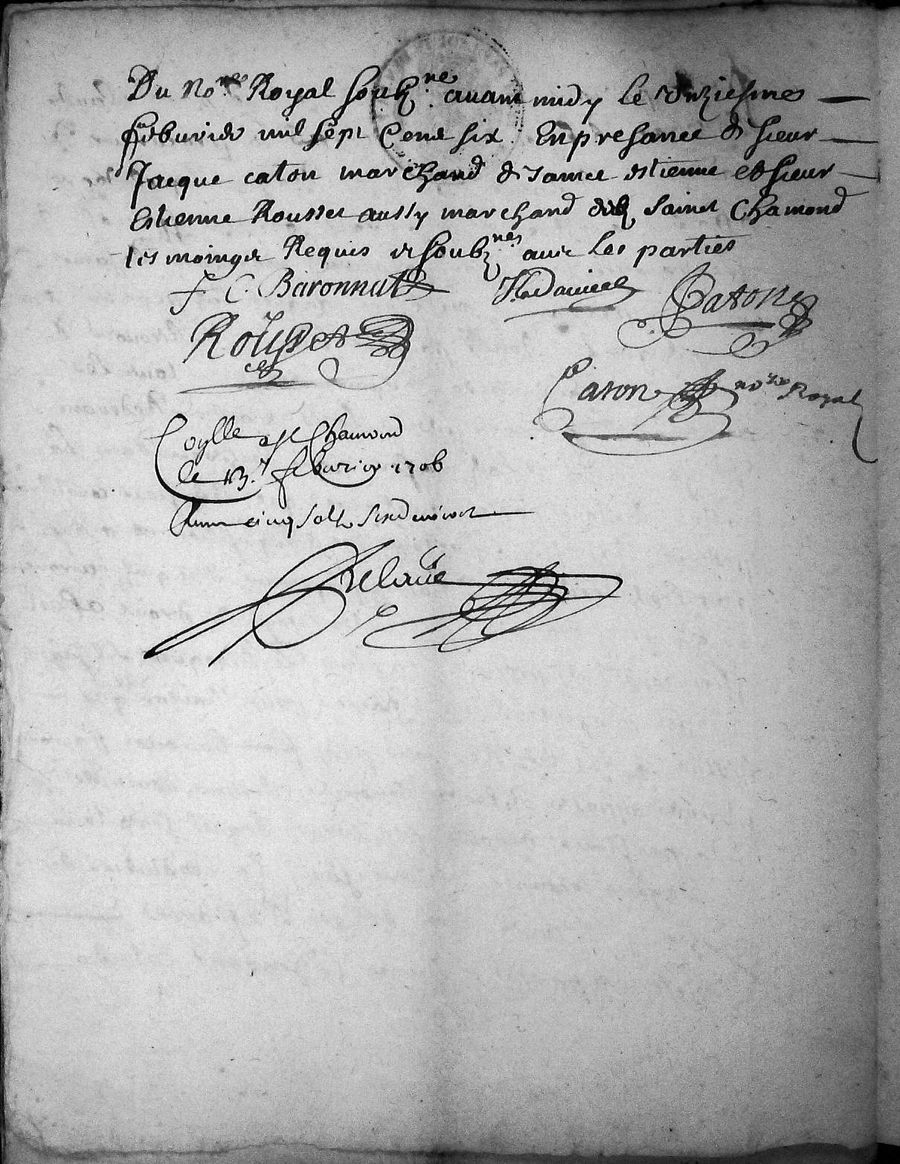 Du No.re Royal soubz.ne avant midy le onziesme
febvrier mil sept cent six En presance de sieur
Jacque caton marchand de sainct estienne et sieur
Estienne Rousset aussy marchand dud sainct Chamond
tesmoingz Requis et soubz.nes avec les parties
F C Baronnat
Caton
Rousset
Caton no.re Royal
Colle a st Chamond
le 13.e febvrier 1706
cinq solz
Delarüe